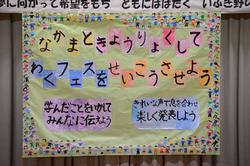 に向かって希望をもち ともにはばたく いぶき野
なかまときょうりょくして
わくフェスをせいこうさせよう
学んだことをいかして
みんなに伝えよう
きれいな声で息を合わせ
楽しく発表しよう